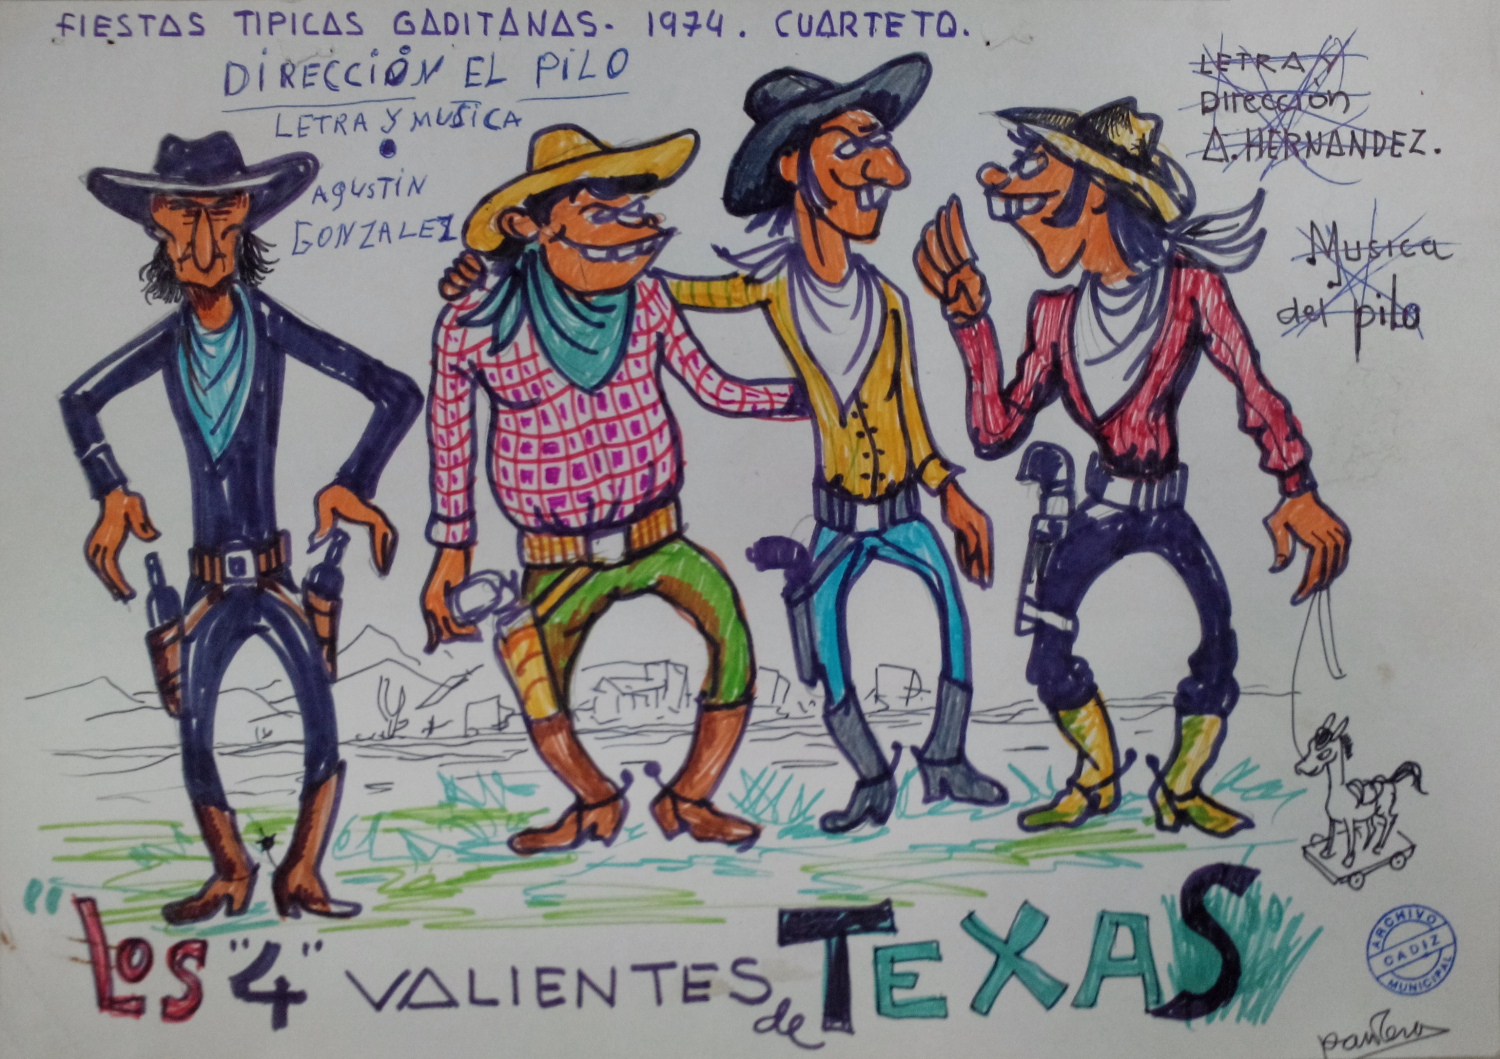 FIESTAS TIPICAS GADITANAS- 1974. CUARTETO.
DIRECCIÓN EL PILO
LETRA Y MUSICA
AGUSTIN
GONZALEZ
LETRA Y
Dirección
A. HERNANDEZ.
Musica
del pilo
"LOS "4" VALIENTES de TEXAS
ARCHIVO
CADIZ
MUNICIPAL